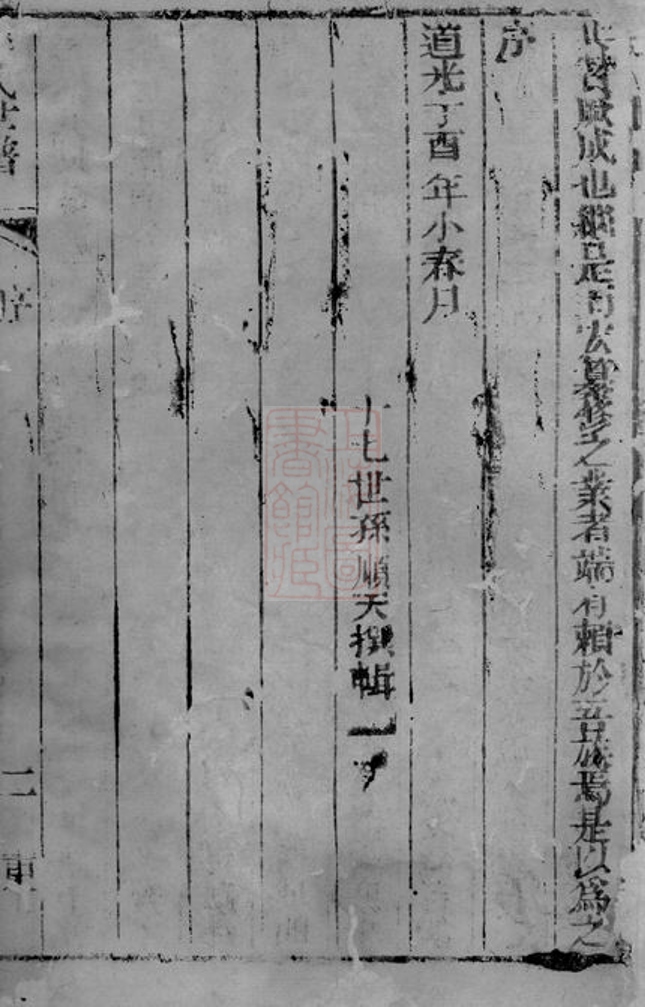 賦成也繼是而宏纂修之業者端有賴於吾族焉是以爲之
序
道光丁酉年小春月
十七世孫順天撰輯
氏世譜 序 二